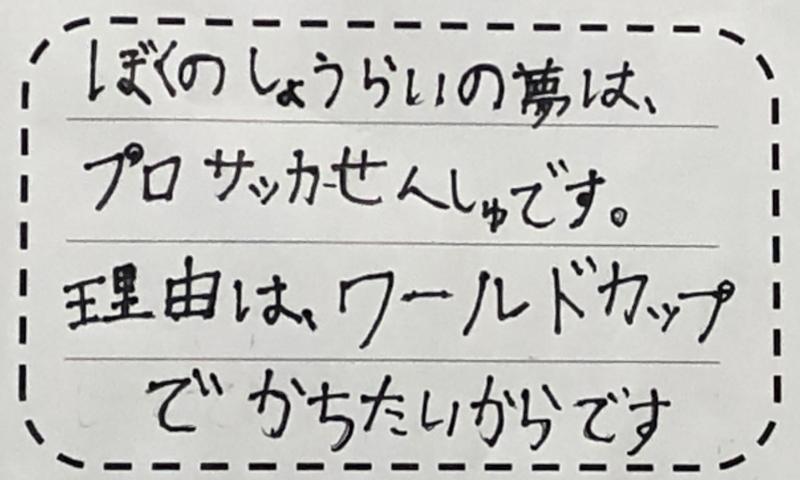 ぼくのしょうらいの夢は、
プロサッカーせんしゅです。
理由は、ワールドカップ
でかちたいからです